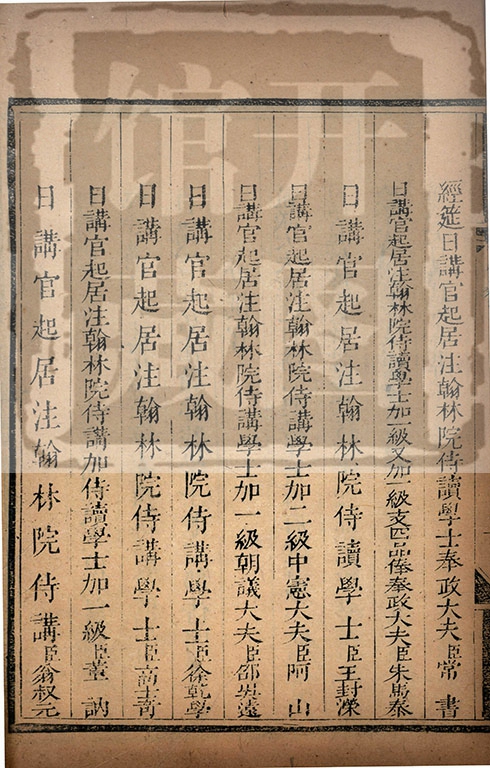 經筵日講官起居注翰林院侍讀學士奉政大夫臣常書
日講官起居注翰林院侍讀學士加一級又加一級支四品俸奉政大夫臣朱馬泰
日講官起居注翰林院侍讀學士臣王封濚
日講官起居注翰林院侍講學士加二級中憲大夫臣阿山
日講官起居注翰林院侍講學士加一級朝議大夫臣邵吳遠
日講官起居注翰林院侍講學士臣徐乾學
日講官起居注翰林院侍講學士臣高士奇
日講官起居注翰林院侍講加侍讀學士加一級臣董訥
日講官起居注翰林院侍講臣翁叔元